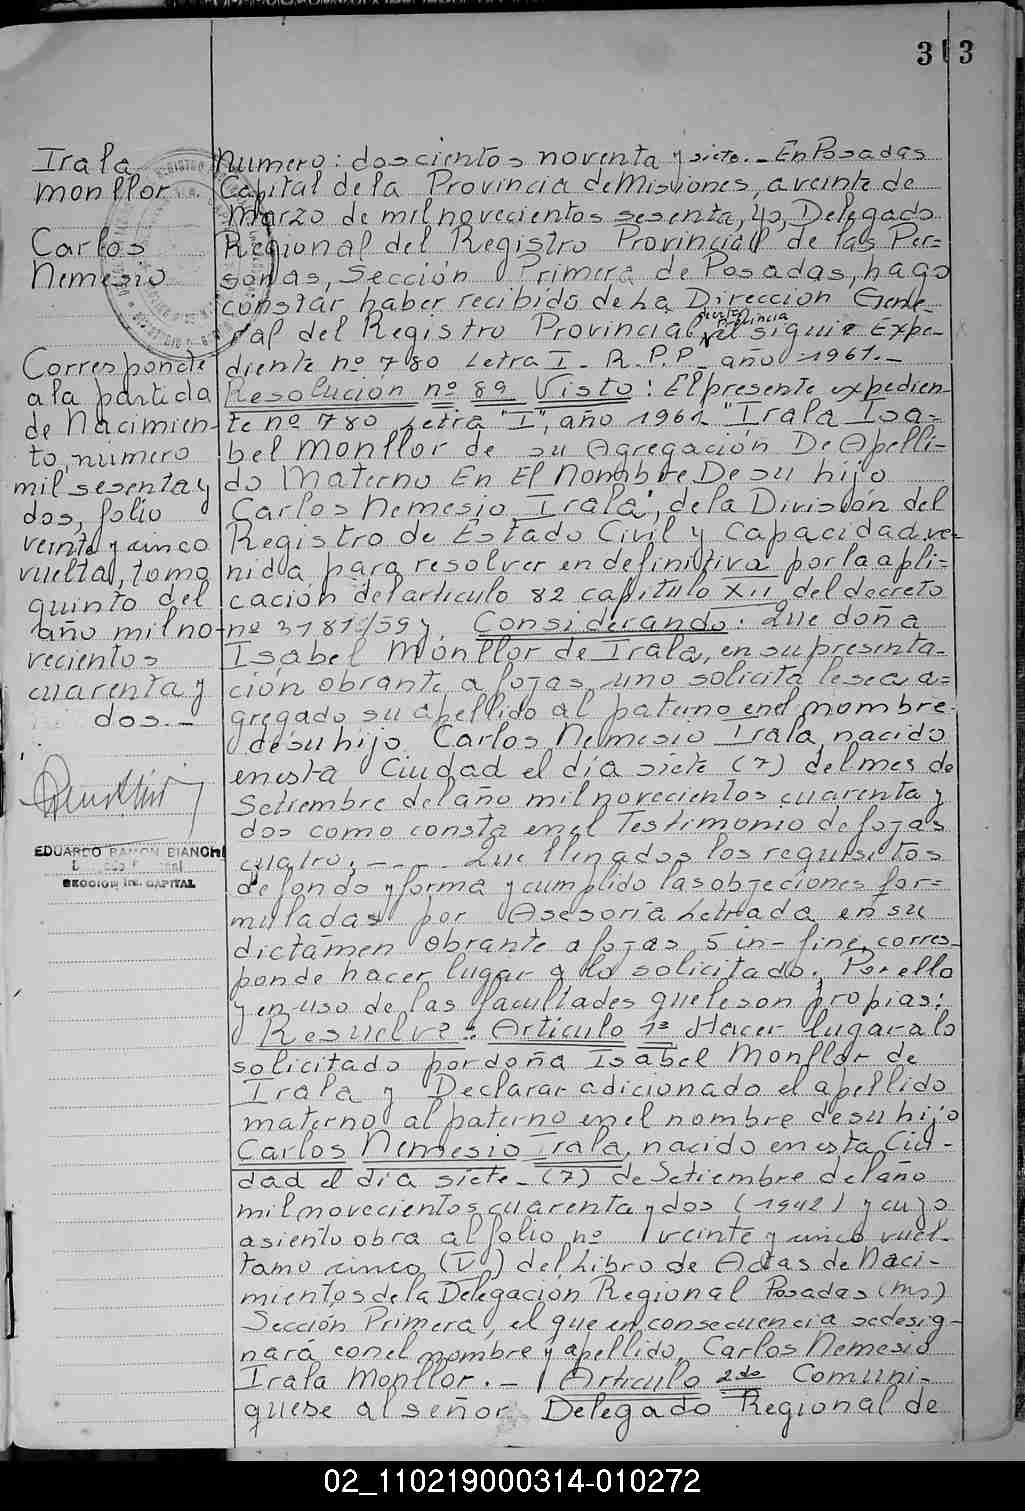 3 3
Irala
Monllor
Carlos
Nemesio
Correspondte
a la partida
de Nacimien-
to, numero
mil sesenta y
dos, folio
veinte y cinco
vuelta, tomo
quinto del
año mil no-
vecientos
cuarenta y
dos.-
EDUARDO RAMON BIANCHI
SECCION CAPITAL
Numero: doscientos noventa y siete.- En Posadas
Capital de la Provincia de Misiones, a veinte de
Marzo de mil novecientos sesenta, yo, Delegado
Regional del Registro Provincial de las Per=
sonas, Sección Primera de Posadas, hago
constar haber recibido de La Direccion Gene-
ral del Registro Provincial el siguie Expe-
diente nº 780 Letra I - R.P.P. año 1961.-
Resolución nº 89 Visto: El presente expedien-
te nº 780, Letra "I", año 1961. "Irala Isa=
bel Monllor de su Agregación De Apelli-
do Materno En El Nonobre De su hijo
Carlos Nemesio Irala", de la División del
Registro de Estado Civil y Capacidad, ve-
nida para resolver en definitiva por la apli=
cación del articulo 82 capitulo XII del decreto
nº 3181/59 y Considerando: Que doña
Isabel Monllor de Irala, en su presenta-
ción obrante a fojas uno solicita le sea a=
gregado su apellido al paterno en el nombre
de su hijo Carlos Nemesio Irala, nacido
en esta Ciudad el día siete (7) del mes de
Setiembre del año mil novecientos cuarenta y
dos como consta en el Testimonio de fojas
cuatro; - - - - Que llenados los requisitos
de fondo y forma y cumplido las objeciones for=
muladas por Asesoría Letrada en su
dictámen obrante a fojas 5 in-fine, corres-
ponde hacer lugar a lo solicitado; Por ello
y en uso de las facultades que le son propias:
Resuelve: Articulo 1º Hacer lugar a lo
solicitado por doña Isabel Monllor de
Irala y Declarar adicionado el apellido
materno al paterno en el nombre de su hijo
Carlos Nemesio Irala, nacido en esta Ciu-
dad el dia siete - (7) de Setiembre del año
mil novecientos cuarenta y dos (1942) y cuyo
asiento obra al folio nº veinte y cinco vuel-
tamo cinco (V) del Libro de Actas de Naci-
mientos de la Delegación Regional Posadas (Ms)
Sección Primera, el que en consecuencia se desig-
nará con el nombre y apellido, Carlos Nemesio
Irala Monllor.- Articulo 2do Comuni-
quese al señor Delegado Regional de
02_110219000314-010272